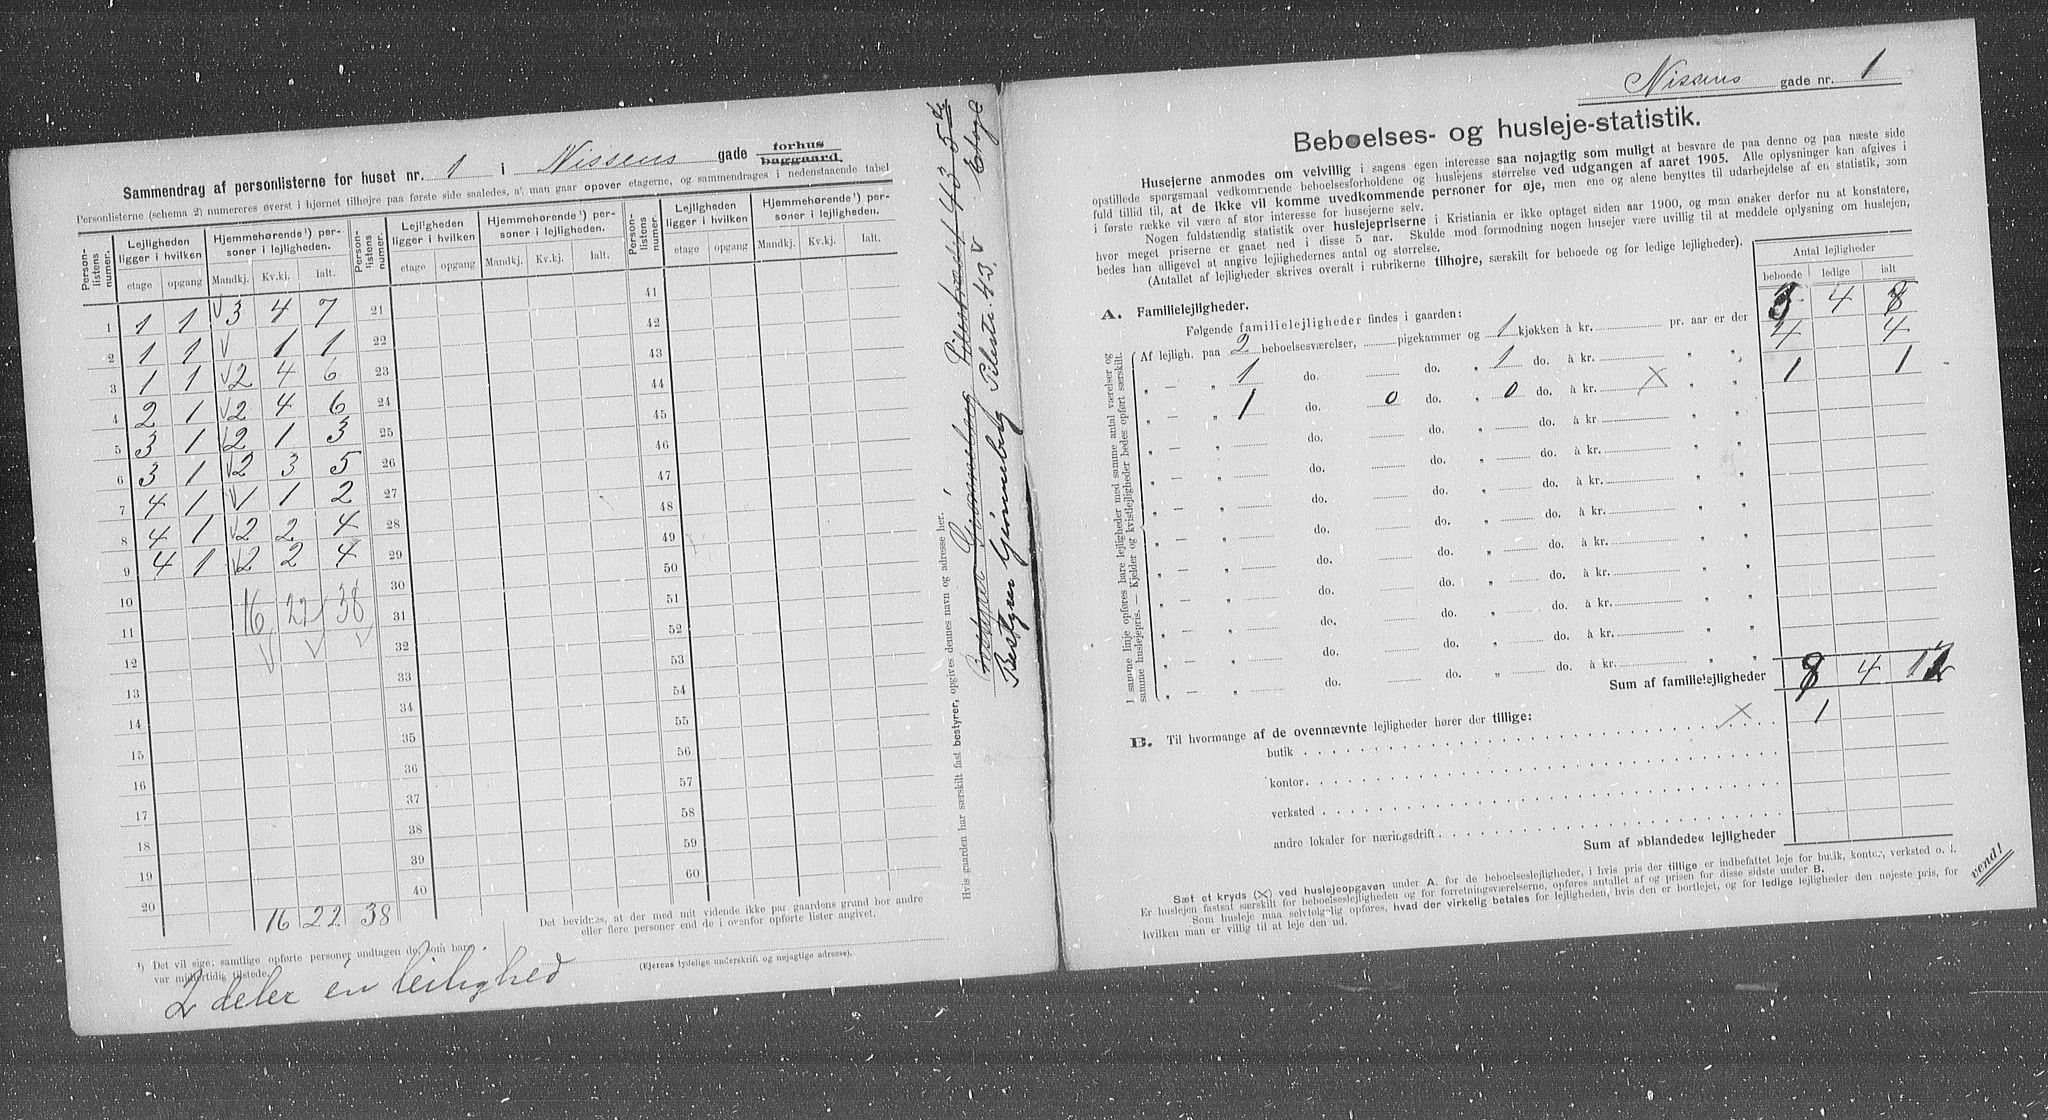 Sammendrag af personlisterne for huset nr. 1 i Nissens gade forhus baggaard.
Personlisterne (schema 2) numereres øverst i hjørnet tilhøjre paa første side saaledes, at man gaar opover etagerne, og sammendrages i nedenstaaende tabel
Personlistens numer. Lejligheden ligger i hvilken Hjemmehørende¹) personer i lejligheden. Personlistens numer. Lejligheden ligger i hvilken Hjemmehørende¹) personer i lejligheden. Personlistens numer. Lejligheden ligger i hvilken Hjemmehørende¹) personer i lejligheden.
etage opgang Mandkj. Kv.kj. Ialt. etage opgang Mandkj. Kv.kj. Ialt. etage opgang Mandkj. Kv.kj. Ialt.
1 1 1 V 3 4 7 21 41
2 1 1 V 1 1 22 42
3 1 1 V 2 4 6 23 43
4 2 1 V 2 4 6 24 44
5 3 1 V 2 1 3 25 45
6 3 1 V 2 3 5 26 46
7 4 1 V 1 1 2 27 47
8 4 1 V 2 2 4 28 48
9 4 1 V 2 2 4 29 49
10 16 22 38 30 50
11 31 51
12 32 52
13 33 53
14 34 54
15 35 55
16 36 56
17 37 57
18 38 58
19 39 59
20 40 60
16 22 38
Det bevidnes, at der med mit vidende ikke paa gaardens grund bor andre
eller flere personer end de i ovenfor opførte lister angivet.
(Ejerens tydelige underskrift og nøjagtige adresse).
¹) Det vil sige: samtlige opførte personer undtagen de, som bare
var midlertidig tilstede.
2 deler én leilighed
Hvis gaarden har særskilt fast bestyrer, opgives dennes navn og adresse her.
Bestyrer Gjönneberg Pilestr. 43, V Etage
Nissens gade nr. 1
Beboelses- og husleje-statistik.
Husejerne anmodes om velvillig i sagens egen interesse saa nøjagtig som muligt at besvare de paa denne og paa næste side
opstillede spørgsmaal vedkommende beboelsesforholdene og huslejens størrelse ved udgangen af aaret 1905. Alle oplysninger kan afgives i
fuld tillid til, at de ikke vil komme uvedkommende personer for øje, men ene og alene benyttes til udarbejdelse af en statistik, som
i første række vil være af stor interesse for husejerne selv.
Nogen fuldstændig statistik over huslejepriserne i Kristiania er ikke optaget siden aar 1900, og man ønsker derfor nu at konstatere,
hvor meget priserne er gaaet ned i disse 5 aar. Skulde mod formodning nogen husejer være uvillig til at meddele oplysning om huslejen,
bedes han alligevel at angive lejlighedernes antal og størrelse.
(Antallet af lejligheder skrives overalt i rubrikerne tilhøjre, særskilt for beboede og for ledige lejligheder).
Antal lejligheder
beboede ledige ialt
A. Familielejligheder.
Følgende familielejligheder findes i gaarden:
I samme linje opføres bare lejligheder med samme antal værelser og
samme huslejepris. — Kjelder og kvistlejligheder bedes opført særskilt.
Af lejligh. paa 2 beboelsesværelser, pigekammer og 1 kjøkken à kr. pr. aar er der 4
" — " 1 do. do. " 1 do. à kr. " " 4 4
" — " 1 do. 0 do. " 0 do. à kr. X " " 1 1
" — " do. do. " do. à kr. " "
" — " do. do. " do. à kr. " "
" — " do. do. " do. à kr. " "
" — " do. do. " do. à kr. " "
" — " do. do. " do. à kr. " "
" — " do. do. " do. à kr. " "
" — " do. do. " do. à kr. " "
" — " do. do. " do. à kr. " "
" — " do. do. " do. à kr. " "
Sum af familielejligheder 4
B. Til hvormange af de ovennævnte lejligheder hører der tillige:
butik X 1
kontor
verksted
andre lokaler for næringsdrift
Sum af »blandede« lejligheder
Sæt et kryds (X) ved huslejeopgaven under A. for de beboelseslejligheder, i hvis pris der tillige er indbefattet leje for butik, kontor, verksted o. l.
Er huslejen fastsat særskilt for beboelseslejligheden og for forretningsværelserne, opføres antallet af og prisen for disse sidste under B.
Som husleje maa selvtølgelig opføres, hvad der virkelig betales for lejligheden, hvis den er bortlejet, og for ledige lejligheder den nøjeste pris, for
hvilken man er villig til at leje den ud.
vend!